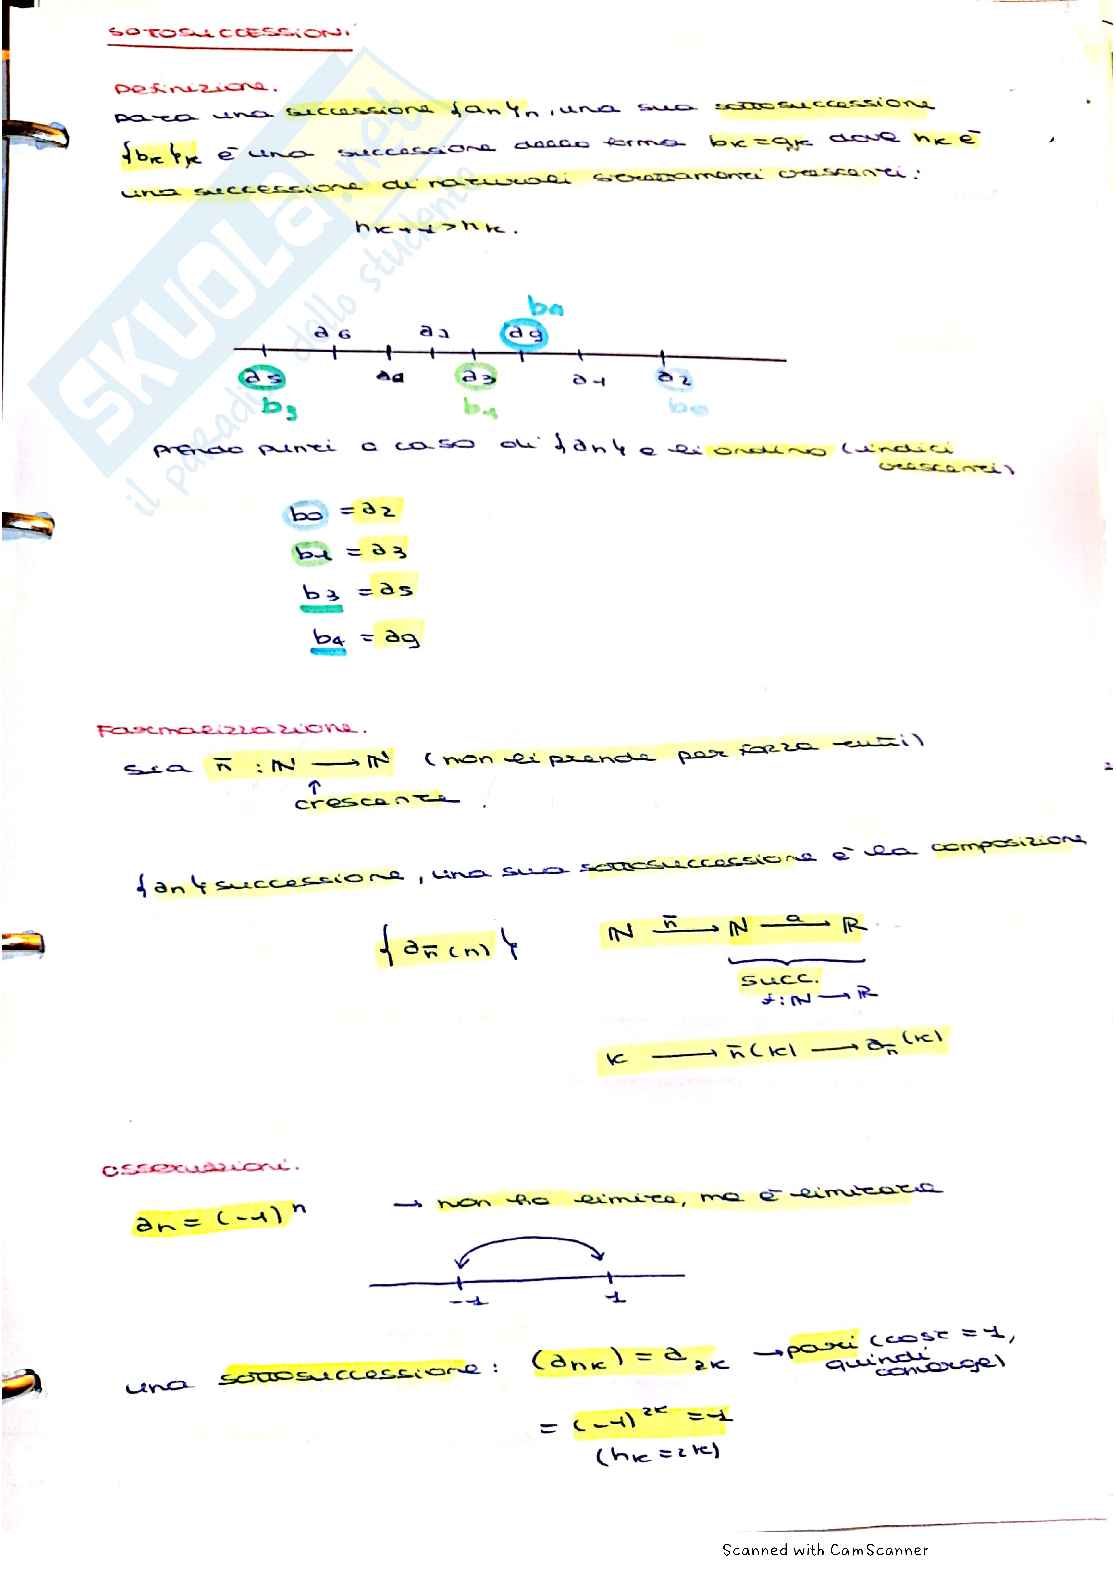 SOTOSUCCESSIONI
Definizione.
Data una successione {an}n, una sua sottosuccessione
{bk}k è una successione della forma bk = ank dove nk è
una successione di naturali strettamenti crescenti:
nk+1 > nk.
b4
a6 a7 a9
a5 a3 a1 a2
b3 b1 b0
prendo punti a caso di {an} e li ordino (indici
crescenti)
b0 = a2
b1 = a3
b3 = a5
b4 = a9
Formalizzazione.
Sia n̄ : ℕ → ℕ (non li prende per forza tutti)
↑
crescente.
{an} successione, una sua sottosuccessione è la composizione
{an̄(n)} ℕ n̄→ ℕ a→ ℝ
succ.
f: ℕ → ℝ
k → n̄(k) → an̄(k)
Osservazioni.
an = (-1)^n → non ha limite, ma è limitata
-1 1
una sottosuccessione: (ank) = a2k → pari (cost = 1,
quindi
converge)
= (-1)^2k = 1
(nk = 2k)
SKUOLA.net
il paradiso dello studente
Scanned with CamScanner